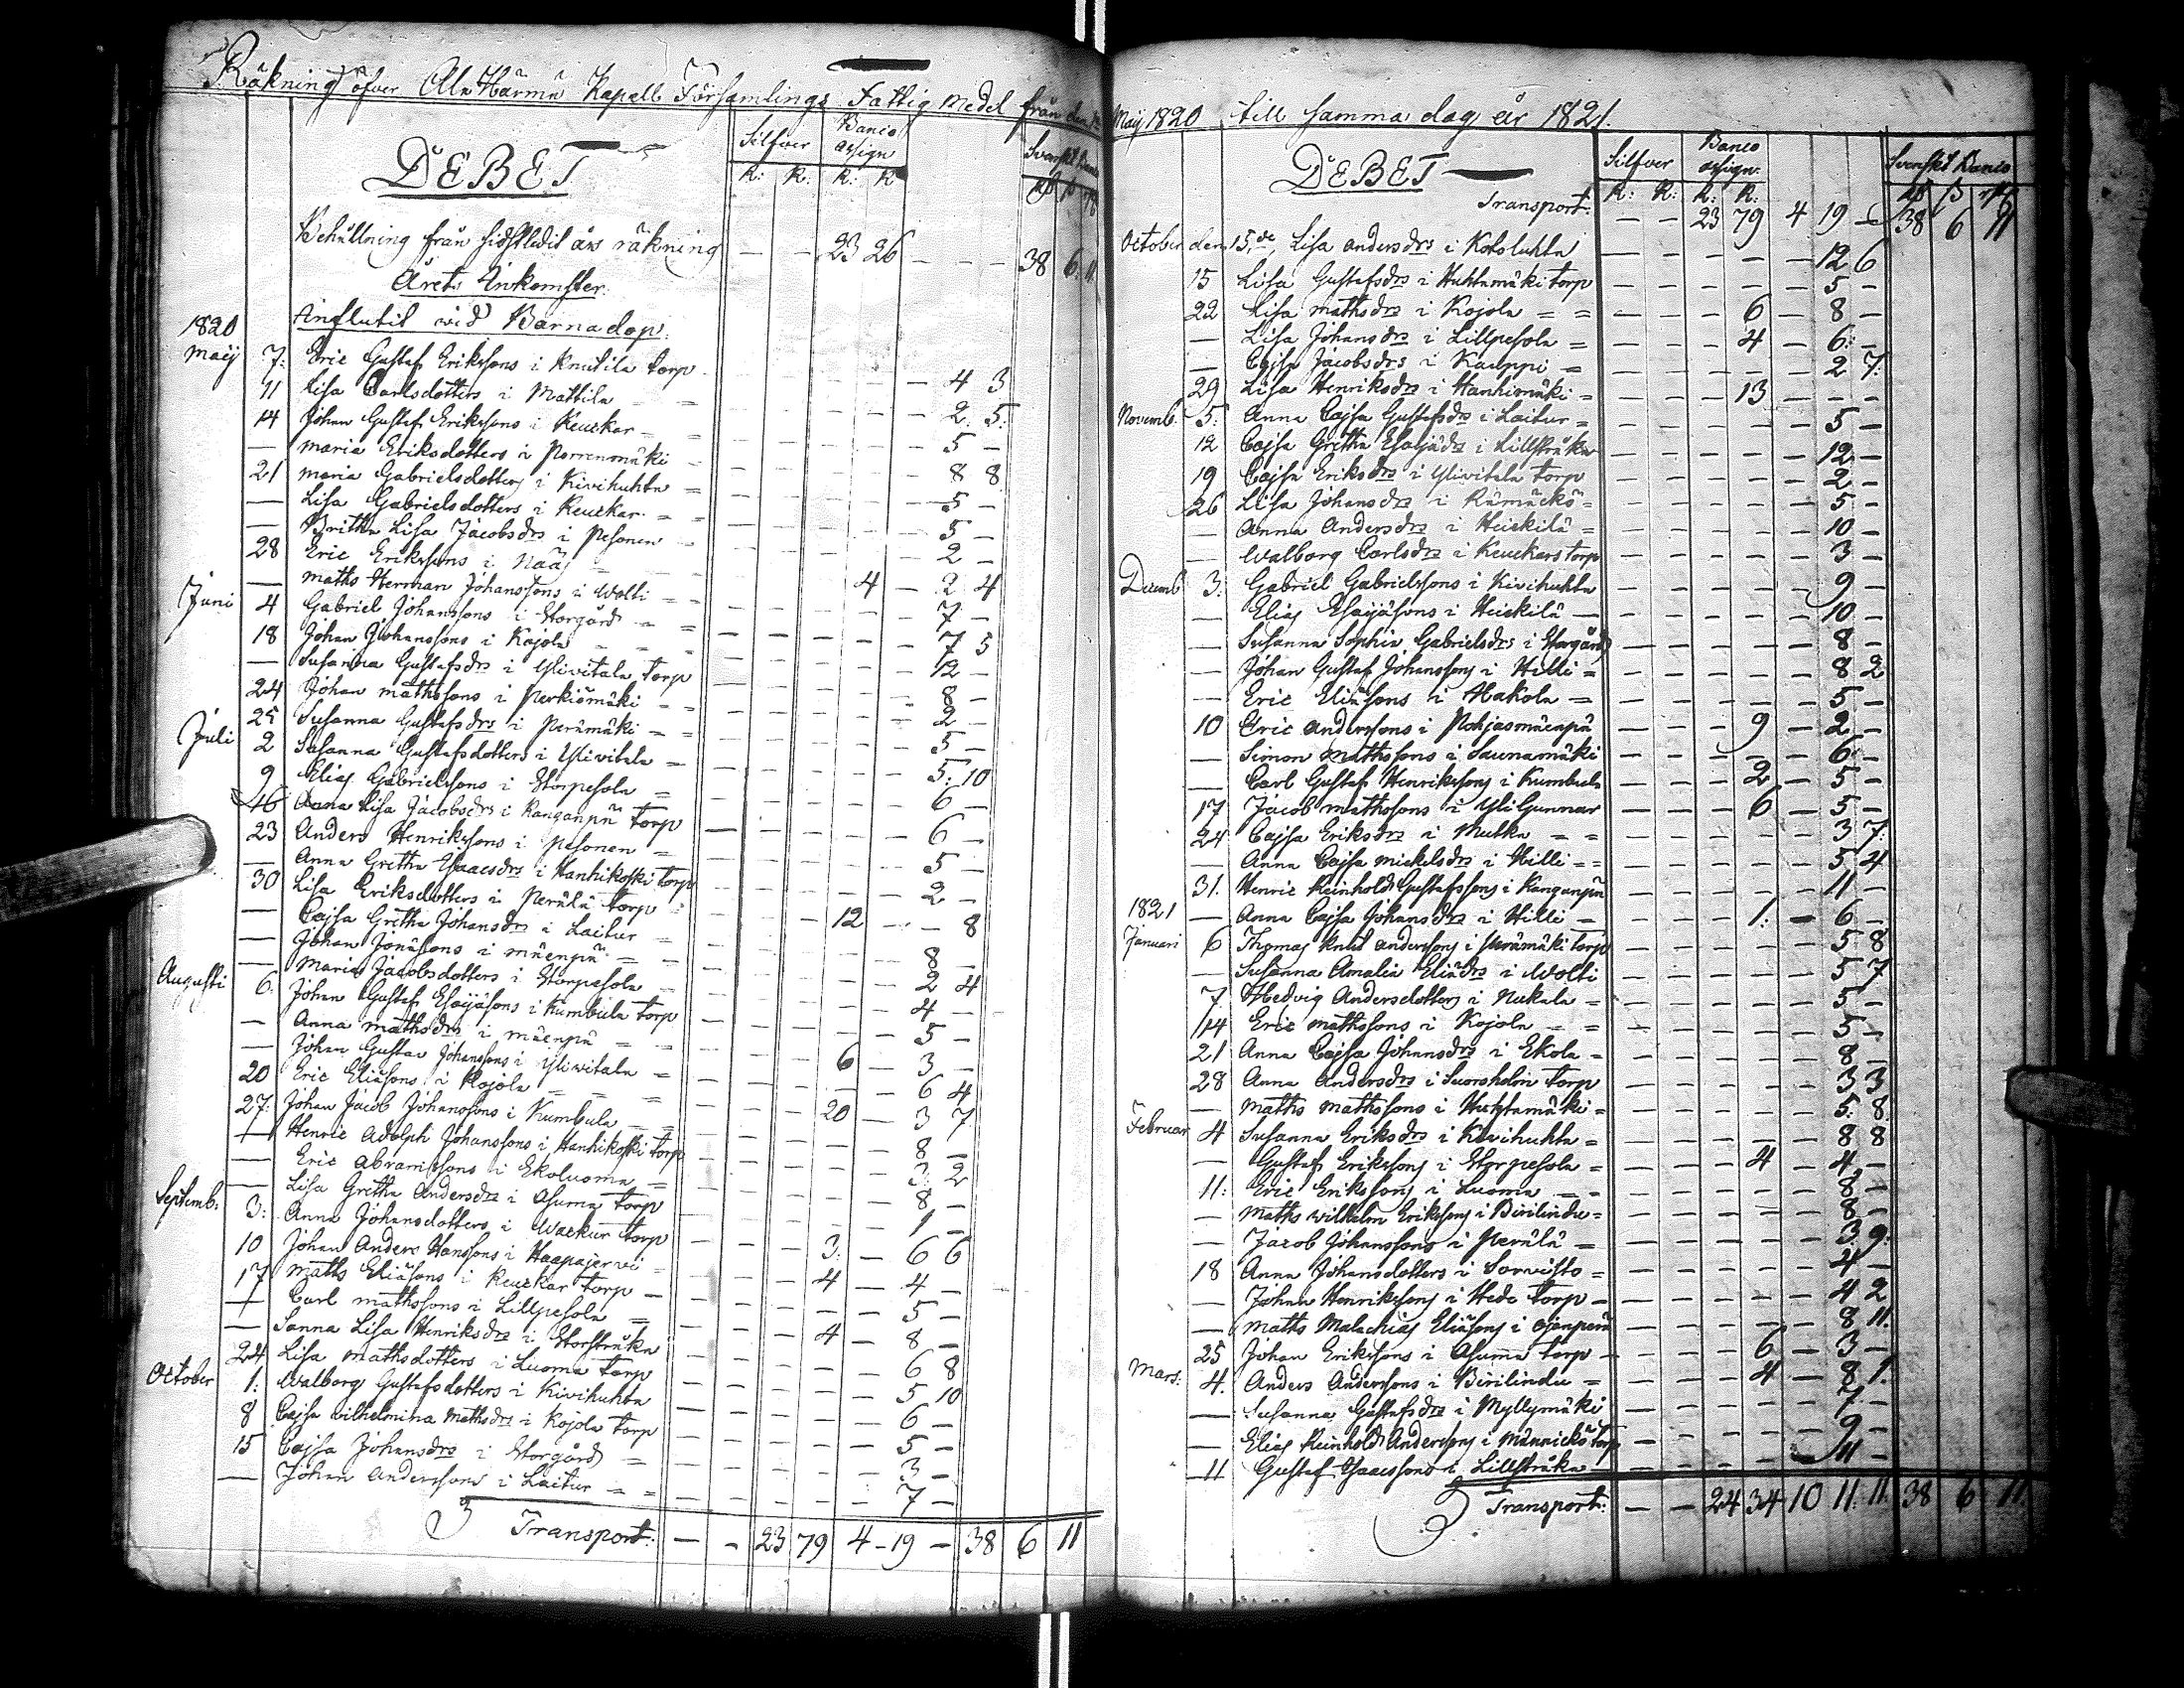 Räkning öfver Ala Härmä Kapell Församlings Fattig Medel från den 1 Maij 1820 till samma dag år 1821.
DEBET
Silfver Banco assign Svenskt Banco
R: K: R: K
Behållning från sidstledit års räkning — — 23 26 — — — 38 6. 11.
Årets Inkomster.
Influtit vid Barnadop.
1820
Maij 7: Eric Gustaf Erikssons i Knutila torp — 4 3
11 Lisa Carlsdotters i Mattila — 2. 5.
14 Johan Gustaf Erikssons i Keuckar — 5 —
— Maria Eriksdotters i Porrenmäki — 8 8
21 Maria Gabrielsdotters i Kivihuhta — 5 —
— Lisa Gabrielsdotters i Keuckar — 5 —
— Britha Lisa Jacobsdrs i Pesonen — 2 —
28 Eric Erikssons i Nääs 4 — 2 4
— Maths Herman Johanssons i Wolti — 7 —
Juni 4 Gabriel Johanssons i Storgård — 7 5
18 Johan Johanssons i Kojola — 12 —
— Susanna Gustafsdrs i Ylivitala torp — 8 —
24 Johan Mathssons i Perkiömäki — 2 —
25 Susanna Gustafsdrs i Perämäki — 5 —
Juli 2 Susanna Gustafsdotters i Ylivitala — 5. 10
9 Elias Gabrielssons i Storpesola — 6 —
16 Anna Lisa Jacobsdrs i Kanganpä torp — 6 —
23 Anders Henrikssons i Pesonen — 5 —
— Anna Gretha Isaacsdrs i Hanhikoski torp — 2 —
30 Lisa Eriksdotters i Perälä torp 12 — — 8
— Cajsa Gretha Johansdrs i Laitur — 8 —
— Johan Jonässons i Mäenpä — 2 4
— Maria Jacobsdotters i Storpesola — 4 —
Augusti 6. Johan Gustaf Esaijäsons i Kumbula torp — 5 —
— Anna Mathsdrs i Mäenpä 6 — 3 —
— Johan Gustav Johanssons i Ylivitala — 6 4
20 Eric Eliäsons i Kojola 20 — 3 7
27: Johan Jacob Johanssons i Kumbula — 8 —
— Henric Adolph Johanssons i Hanhikoski torp — 3. 2
— Eric Abramssons i Ekoluoma — 8 —
— Lisa Gretha Andersdrs i Asuma torp — 1 —
Septemb. 3: Anna Johansdotters i Wackur torp 3. — 6 6
10 Johan Anders Hanssons i Haapajervi 4 — 4 —
17 Maths Eliäsons i Keuckar torp — 5 —
— Carl Mathssons i Lillpesola 4 — 8 —
— Sanna Lisa Henriksdrs i Storstråka — 6 8
24 Lisa Mathsdotters i Luoma torp — 5 10
October 1: Walborg Gustafsdotters i Kivihuhta — 6 —
8 Cajsa Wilhelmina Mathsdrs i Kojola torp — 5 —
15 Cajsa Johansdrs i Storgård — 3 —
— Johan Anderssons i Laitur — 7 —
Transport: — — 23 79 4 — 19 — 38 6 11
DEBET
Silfver Banco assign: Svenskt Banco
R: K: R: K:
Transport: — — 23 79 4 19 — 38 6 11
October den 15.de Lisa Andersdrs i Kotoluhta — 12 6
15 Lisa Gustafsdrs i Huhtamäki torp — 5 —
22 Lisa Mathsdrs i Kojola 6 — 8 —
— Lisa Johansdrs i Lillpesola 4 — 6: —
— Cajsa Jacobsdrs i Kauppi — 2 7.
29 Lisa Henriksdrs i Hanhimäki 13 — — —
Novemb. 5. Anna Cajsa Gustafsdrs i Laitur — 5 —
12 Cajsa Gretha Esaijädrs i Lillstråka — 12 —
19 Cajsa Eriksdrs i Ylivitala torp — 2 —
26 Lisa Johansdrs i Rämäckö — 5 —
— Anna Andersdrs i Heickilä — 10 —
— Walborg Carlsdrs i Keuckars torp — 3 —
Decemb 3. Gabriel Gabrielssons i Kivihuhta — 9 —
— Elias Esaijäsons i Heickilä — 10 —
— Susanna Sophia Gabrielsdrs i Storgård — 8 —
— Johan Gustaf Johanssons i Hilli — 8 2
— Eric Eliäsons i Hakola — 5 —
10 Eric Anderssons i Pohjasmäenpä 9 — 2 —
— Simon Mathssons i Saunamäki — 6 —
— Carl Gustaf Henrikssons i Kumbula 2 — 5 —
17 Jacob Mathssons i Yli Gunnar 6 — 5 —
24 Cajsa Eriksdrs i Mutka — 3 7.
— Anna Cajsa Mickelsdrs i Hilli — 5 4
31. Henric Reinhold Gustafssons i Kanganpä — 11 —
1821 — Anna Cajsa Johansdrs i Hilli 1. — 6 —
Januari 6 Thomas Knut Anderssons i Perämäki torp — 5 8
— Susanna Amalia Eliädrs i Wolti — 5 7
7 Hedvig Andersdotters i Nukala — 5 —
14 Eric Mathssons i Kojola — 5 —
21 Anna Cajsa Johansdrs i Ekola — 8 —
28 Anna Andersdrs i Suorsholm torp — 3 3
— Maths Mathssons i Huhtamäki — 5. 8
Februar. 4 Susanna Eriksdrs i Kivihuhta — 8 8
— Gustaf Erikssons i Storpesola 4 — 4 —
11: Eric Erikssons i Luoma — 8 —
— Maths Wilhelm Erikssons i Birilinda — 8 —
— Jacob Johanssons i Perälä — 3. 9.
18 Anna Johansdotters i Sorvisto — 4 —
— Johan Henrikssons i Hede torp — 4 2
— Maths Malachias Eliäsons i Ojanperä — 8 11.
25 Johan Erikssons i Asuma torp 6 — 3 —
Mars. 4. Anders Anderssons i Birilinda 4 — 8 1.
— Susanna Gustafsdrs i Myllymäki — 7 —
— Elias Reinhold Anderssons i Männickö torp — 9 —
11 Gustaf Isaacssons i Lillstråka — 11 —
Transport: — — 24 34 10 11. 11. 38 6 11.